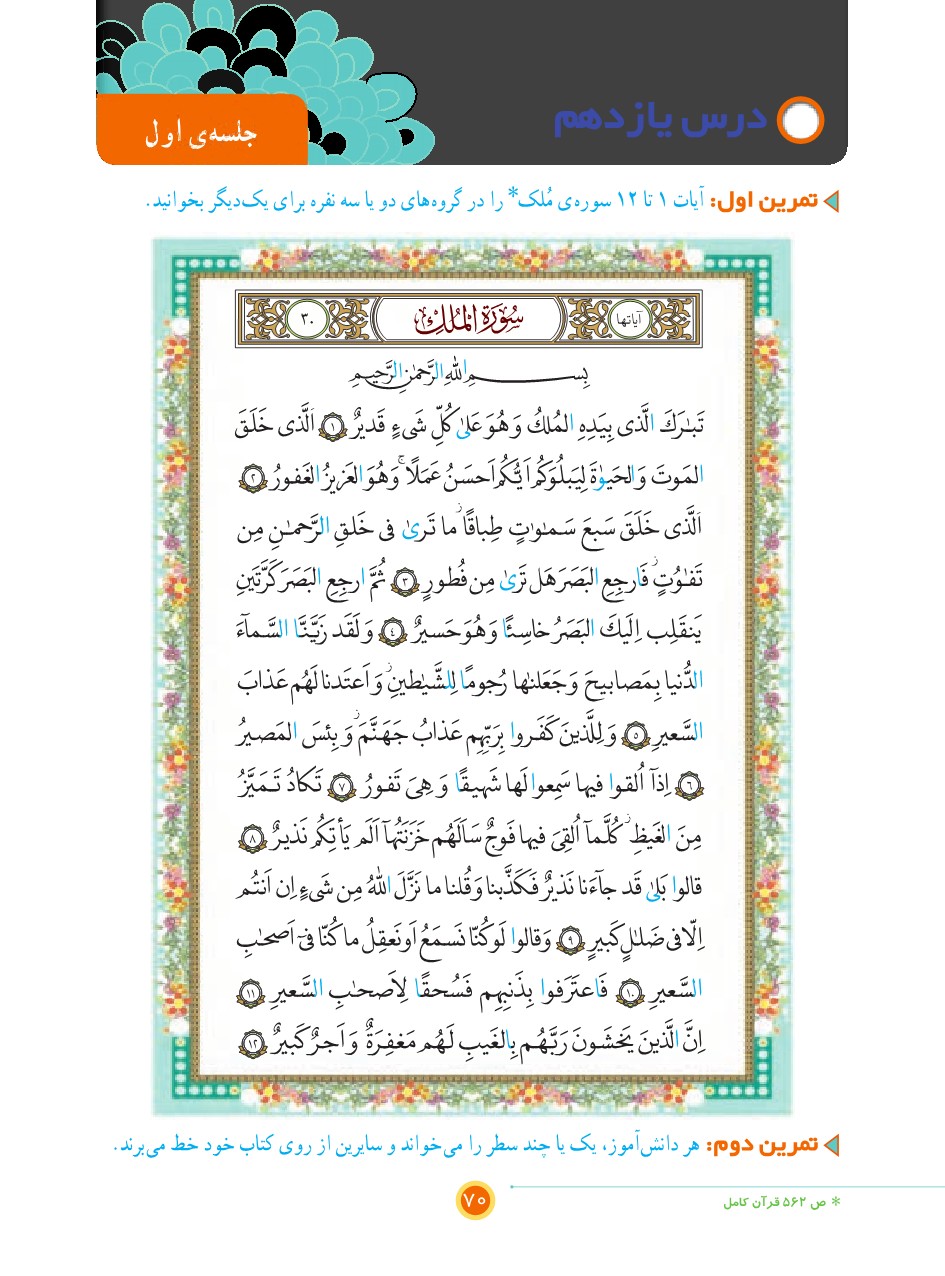 درس یازدهم
جلسه‌ی اول
تمرین اول: آیات ۱ تا ۱۲ سوره‌ی مُلک* را در گروه‌های دو یا سه نفره برای یک‌دیگر بخوانید.
آیاتها
سُورَةُ المُلك
۳۰
بِسمِ اللهِ الرَّحمٰنِ الرَّحیمِ
تَبٰرَكَ الَّذی بِیَدِهِ المُلكُ وَ هُوَ عَلیٰ كُلِّ شَیءٍ قَدیرٌ ۱ اَلَّذی خَلَقَ
المَوتَ وَالحَیوٰةَ لِیَبلُوَكُم اَیُّكُم اَحسَنُ عَمَلًا ۚ وَهُوَ العَزیزُ الغَفورُ ۲
اَلَّذی خَلَقَ سَبعَ سَمٰوٰتٍ طِباقًا ۖ ما تَریٰ فی خَلقِ الرَّحمٰنِ مِن
تَفٰوُتٍ ۖ فَارجِعِ البَصَرَ هَل تَریٰ مِن فُطورٍ ۳ ثُمَّ ارجِعِ البَصَرَ كَرَّتَینِ
یَنقَلِب اِلَیكَ البَصَرُ خاسِئًا وَ هُوَ حَسیرٌ ۴ وَ لَقَد زَیَّنَّا السَّماءَ
الدُّنیا بِمَصابیحَ وَ جَعَلنٰها رُجومًا لِلشَّیٰطینِ ۖ وَ اَعتَدنا لَهُم عَذابَ
السَّعیرِ ۵ وَ لِلَّذینَ كَفَروا بِرَبِّهِم عَذابُ جَهَنَّمَ ۖ وَ بِئسَ المَصیرُ
۶ اِذاۤ اُلقوا فیها سَمِعوا لَها شَهیقًا وَ هِیَ تَفورُ ۷ تَكادُ تَمَیَّزُ
مِنَ الغَیظِ ۖ كُلَّماۤ اُلقِیَ فیها فَوجٌ سَاَلَهُم خَزَنَتُهاۤ اَلَم یَأتِكُم نَذیرٌ ۸
قالوا بَلیٰ قَد جاۤءَنا نَذیرٌ فَكَذَّبنا وَ قُلنا ما نَزَّلَ اللهُ مِن شَیءٍ اِن اَنتُم
اِلّا فی ضَلٰلٍ كَبیرٍ ۹ وَ قالوا لَو كُنّا نَسمَعُ اَو نَعقِلُ ما كُنّا فیۤ اَصحٰبِ
السَّعیرِ ۱۰ فَاعتَرَفوا بِذَنبِهِم فَسُحقًا لِاَصحٰبِ السَّعیرِ ۱۱
اِنَّ الَّذینَ یَخشَونَ رَبَّهُم بِالغَیبِ لَهُم مَغفِرَةٌ وَ اَجرٌ كَبیرٌ ۱۲
تمرین دوم: هر دانش‌آموز، یک یا چند سطر را می‌خواند و سایرین از روی کتاب خود خط می‌برند.
* ص ۵۶۲ قرآن کامل
۷۰